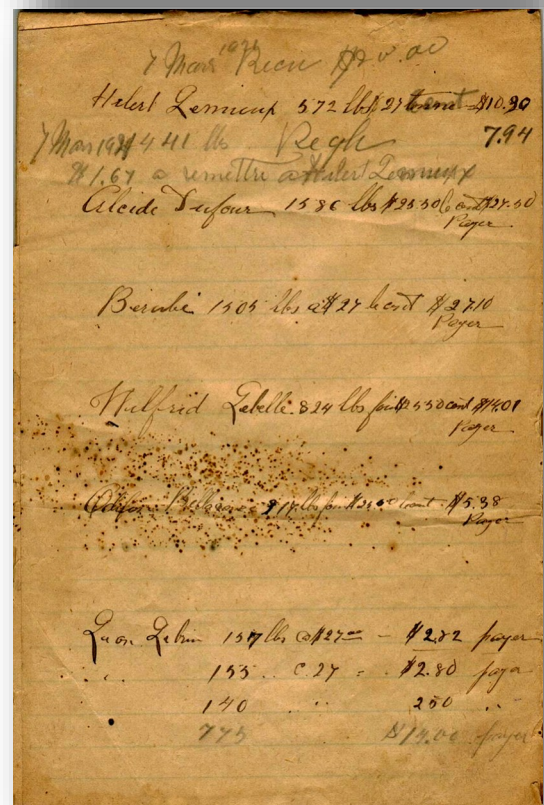 7 Mars 1921 Recu $20.00
Helert Lemieux 572 lbs $27 $10.30
7 Mars 1921 441 lbs Regle 7.94
$1.67 a remettre a Helert Lemieux
Alcide Dufour 1586 lbs $25.50 le cent $27.50
Payer
Berube 1505 lbs a $27 le cent $27.10
Payer
Wilfrid Lebelle 824 lbs foin $25.50 cent $14.01
Payer
lbs foin cent $5.38
Payer
Leon Lebrun 157 lbs a $27.00 - $2.82 payer
" " 155 .. c. 27 = $2.80 paye
140 " 250 "
775 $14.00 payer